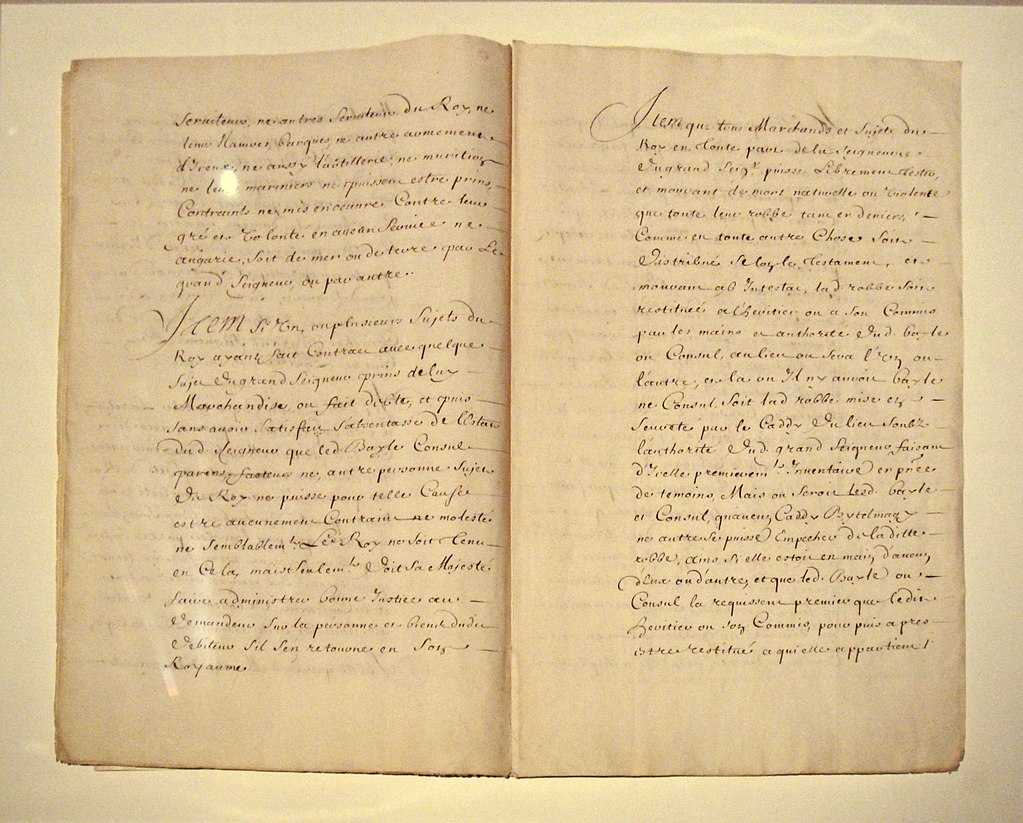 serviteurs, ne autres serviteurs du Roy, ne
leurs Navires, barques, ne autre armement
d'Iceux, ne aussy l'artillerie, ne munition
ne leurs mariniers ne puissent estre prins,
Contraints ne mis en oeuvre Contre leur
gré et Volonté en aucun Service ne
angarie, soit de mer ou de terre par Le
grand Seigneur ou par autre.
Item Si Un, ou plusieurs Sujets du
Roy ayant fait Contract avec quelque
Sujet du grand Seigneur prins de luy
Marchandise, ou fait dette, et puis
sans avoir Satisfait s'absentasse de l'Estat
dud. Seigneur que led. Bayle Consul
parens, facteurs ne, autre personne Sujet
du Roy ne puisse pour telle Cause
estre aucunement Contraint ne molesté
ne Semblablemt. Le Roy ne Soit tenu
en Cela, mais Seulemt. doit Sa Majesté
faire administrer bonne Justice au
demandeur sur la personne et biens dudit
debiteur S'il s'en retourne en Son
Royaume
Item que tous Marchands et Sujets du
Roy en toute part de la Seigneurie
du grand Seigr. puisse Librement tester,
et mourant de mort naturelle ou Violente
que toute leur robbe tant en deniers,
Comme en toute autre Chose Soit
distribué Selon le testament, et
mourant ab Intestat, lad. robbe Soit
restituée a l'heritier ou a Son Commis
par les mains et authorité dud. bayle
ou Consul, au lieu ou Sera l'Un ou
l'autre, et la ou Il n'y auroit bayle
ne Consul Soit lad. robbe mise en
Seureté par le Caddy du lieu Soubz
l'authorité dud. grand Seigneur, faisant
d'Icelle premieremt. Inventaire en pnce
de temoins, Mais ou Seroit lesd. bayle
et Consul, qu'aucun Caddy Beytelmagy
ne autre Se puisse Empecher de la ditte
robbe, ains Si elle estoit en main d'aucun
d'eux ou d'autre, et que led. Bayle ou
Consul la requissent premier que ledit
heritier ou Son Commis, pour puis apres
estre restitué a qui elle appartient